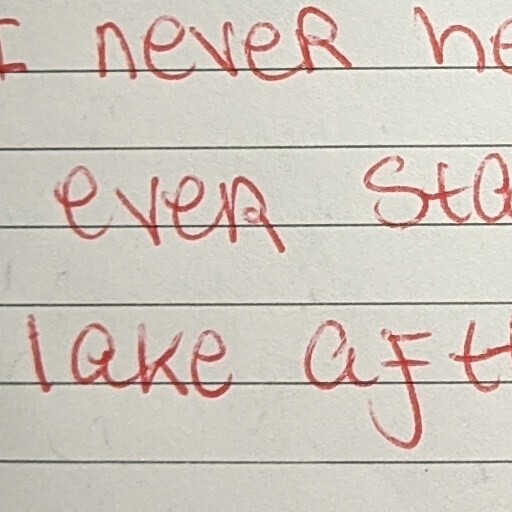 I never he
ever sta
lake aft